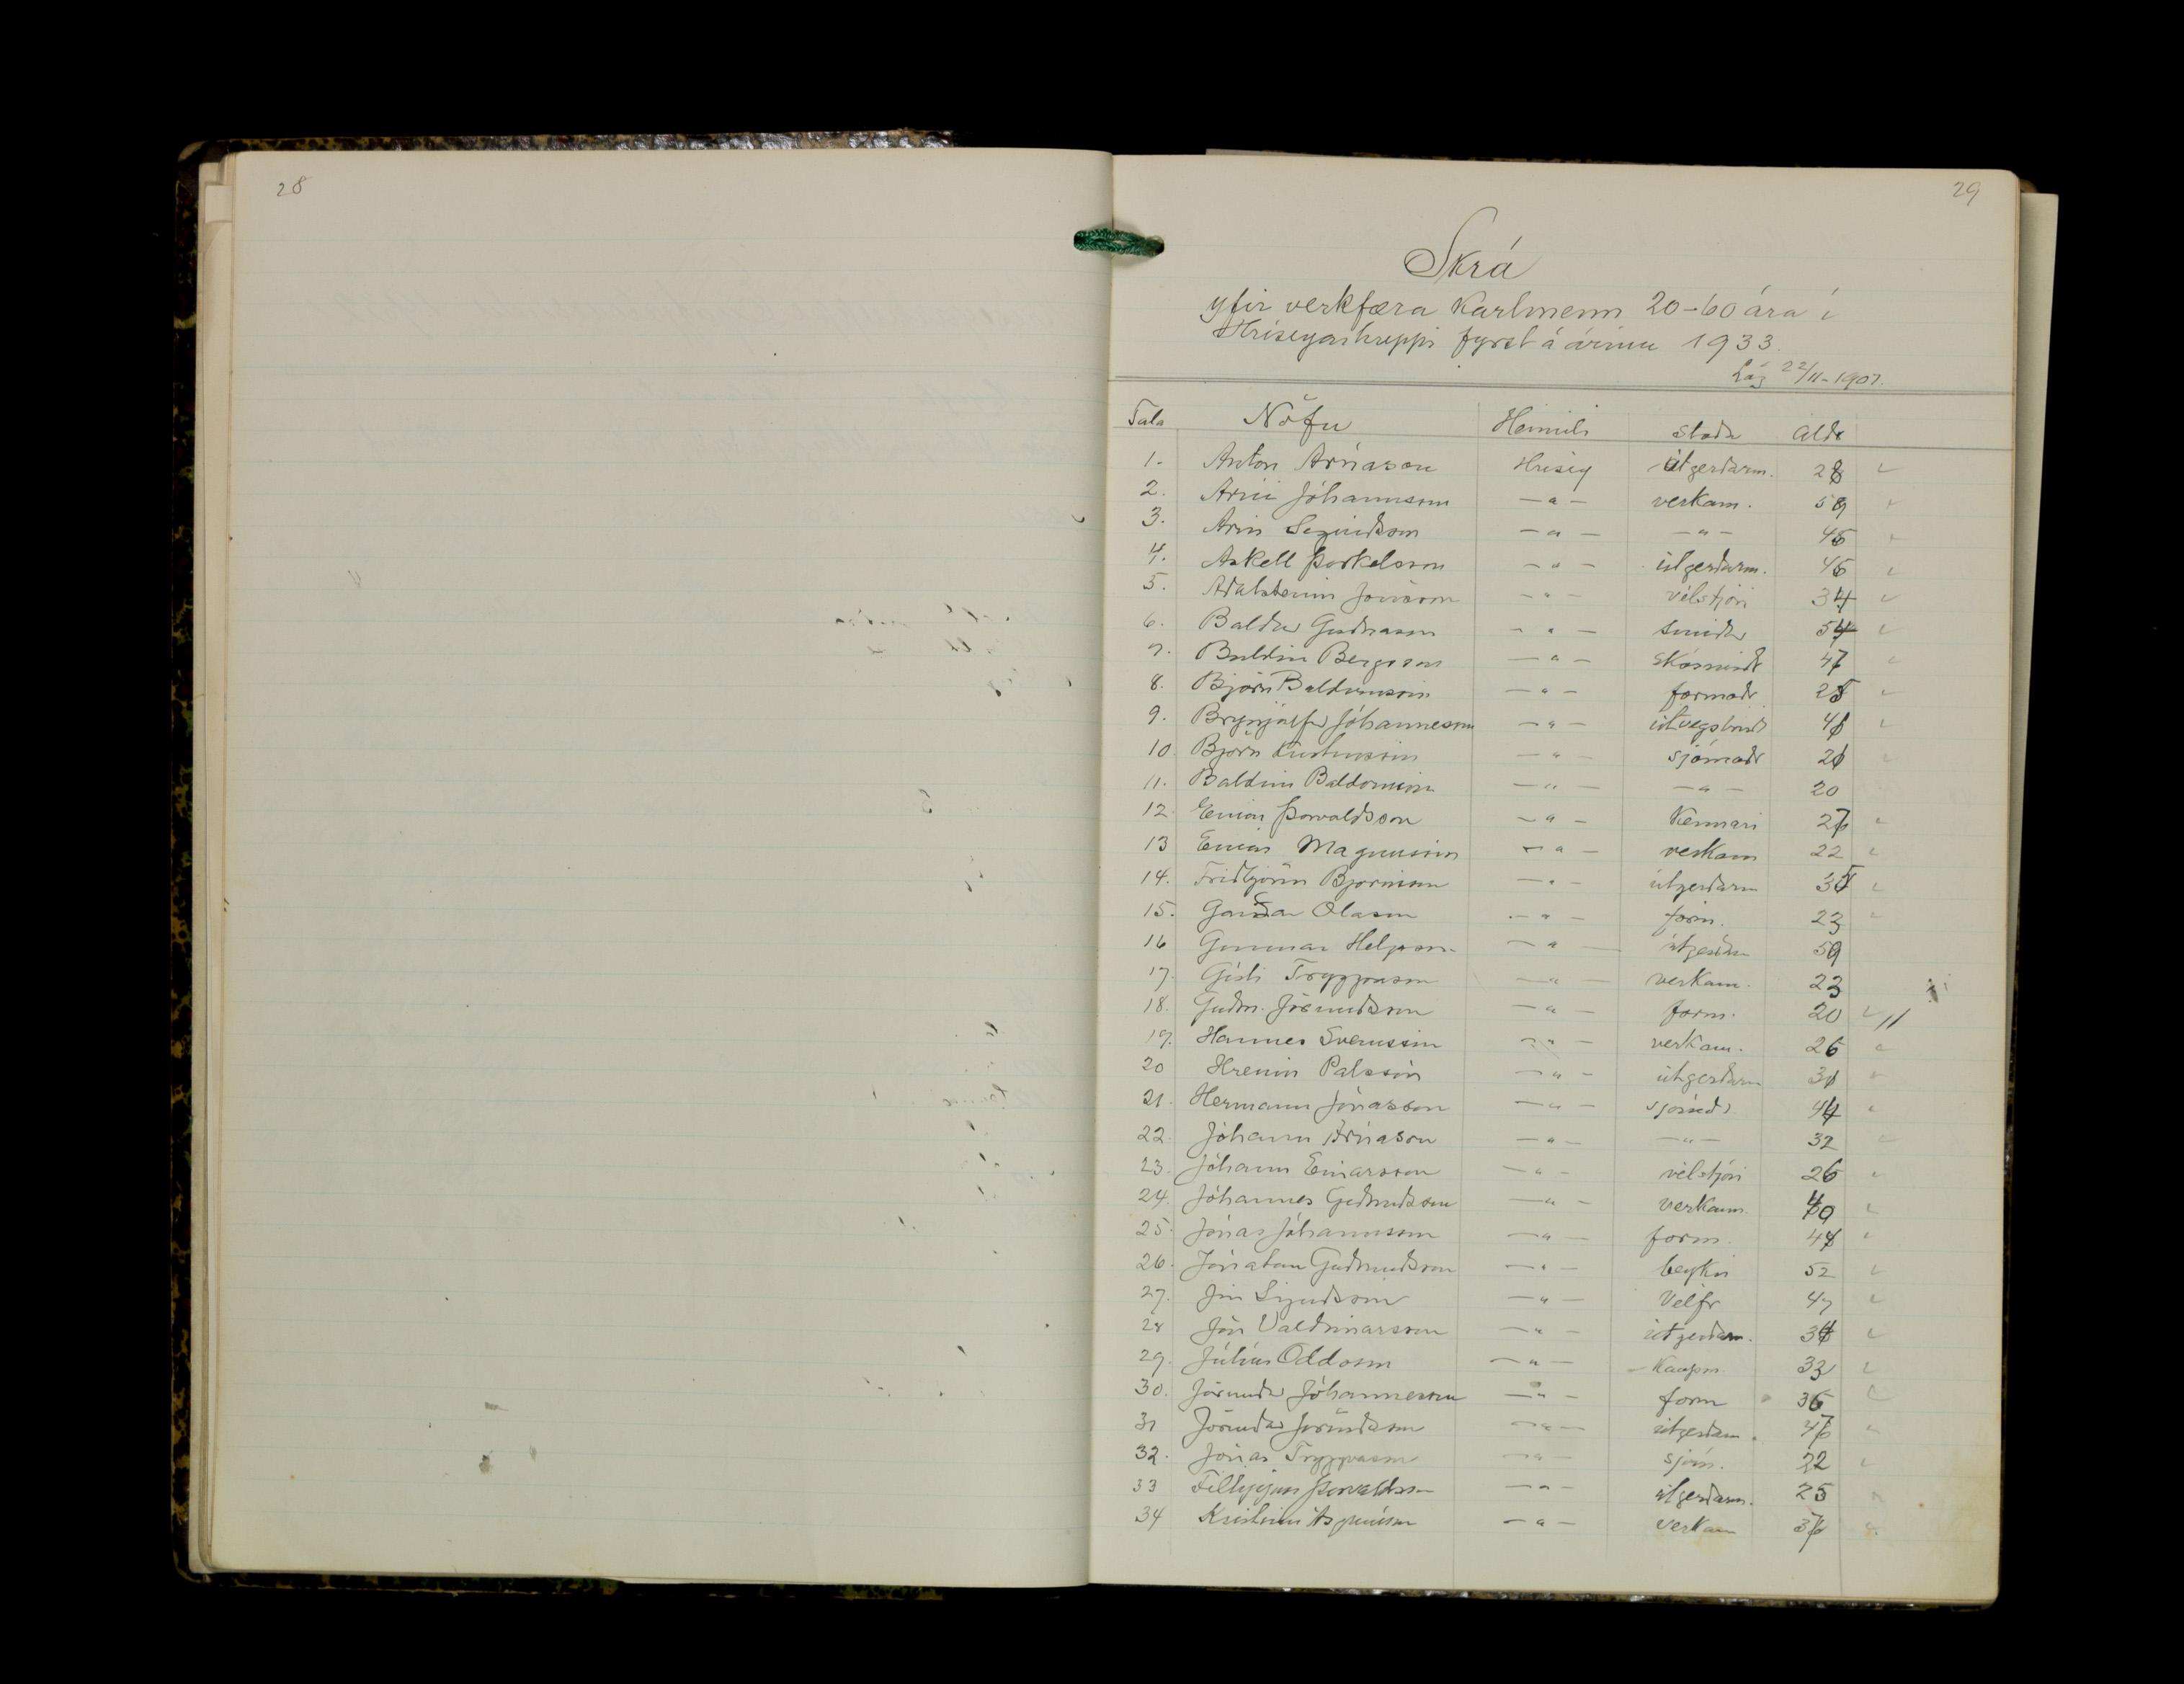 28
29
Skrá
yfir verkfæra karlmenn 20-60 ára í
Hríseyarhreppi fyrst á árinu 1933.
Lög 22/11-1907.
Tala Nöfn Heimili Staða Aldr
1. Anton Árnason Hrísey útgerðarm. 28
2. Árni Jóhannsson —"— verkam. 59
3. Árni Sigurðsson —"— —"— 45
4. Áskell Þorkelsson —"— útgerðarm. 46
5. Aðalsteinn Jónsson —"— vélstjóri 34
6. Baldur Guðnason —"— smiður 54
7. Baldvin Bergsson —"— skósmiðr 47
8. Björn Baldvinsson —"— formaðr 25
9. Brynjólfur Jóhannesson —"— útvegsbóndi 41
10 Björn Kristinsson —"— sjómaðr 21
11. Baldvin Baldvinsson —"— —"— 20
12. Einar Þorvaldsson —"— Kennari 27
13 Einar Magnússon —"— verkam 22
14. Friðbjörn Björnsson —"— útgerðarm 35
15. Garðar Ólason —"— form. 23
16 Gunnar Helgason —"— útgerðm 59
17. Gísli Tryggvason —"— verkam. 23
18. Guðm. Jörundsson —"— form. 20 11
19. Hannes Sveinsson —"— verkam. 26
20 Hreinn Pálsson —"— útgerðarm 31
21. Hermann Jónasson —"— sjómaðr 44
22. Jóhann Árnason —"— —"— 32
23. Jóhann Einarsson —"— vélstjóri 26
24. Jóhannes Guðmundsson —"— verkam. 40
25. Jónas Jóhannsson —"— form. 44
26. Jónatan Guðmundsson —"— beykir 52
27. Jón Sigurðsson —"— Vélfr 47
28 Jón Valdimarsson —"— útgerðarm. 34
29. Júlíus Oddsson —"— Kaupm. 33
30. Jörundur Jóhannesson —"— form 36
31 Jörundur Jörundsson —"— útgerðarm. 47
32. Jónas Tryggvason —"— sjóm. 22
33 Filippus Þorvaldsson —"— útgerðarm. 25
34 Kristinn Ásgrímsson —"— verkam 37